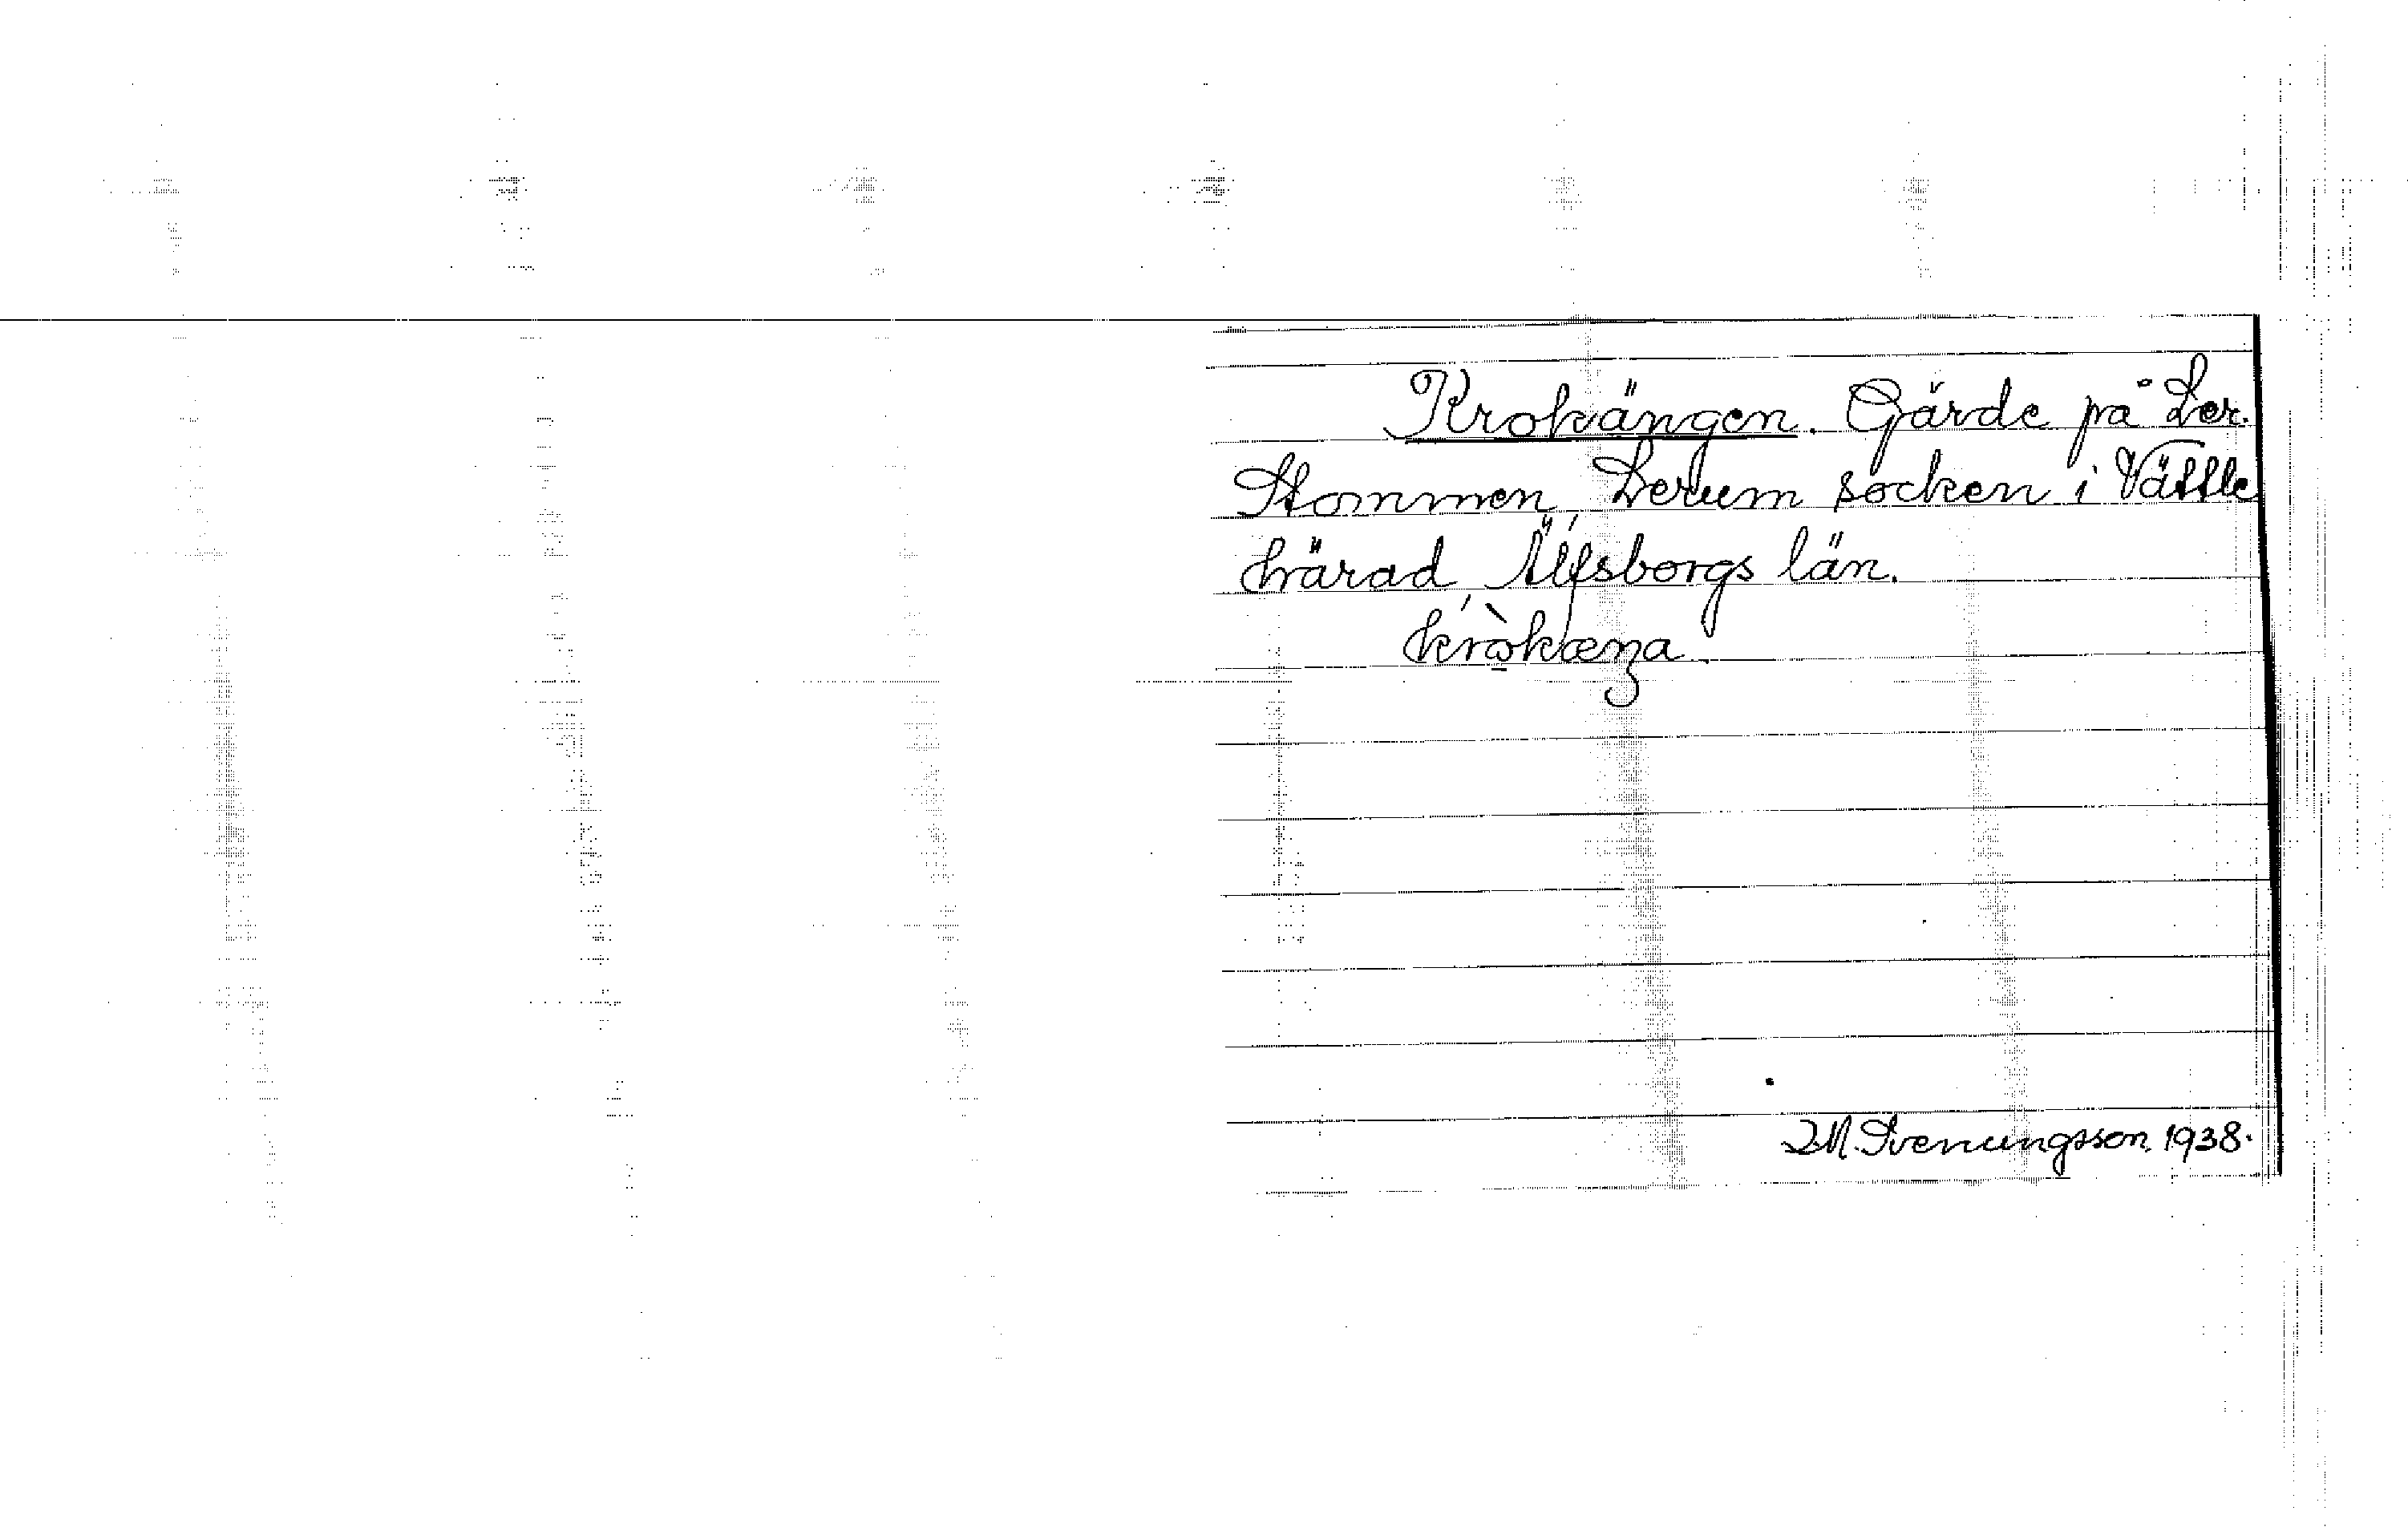 Krokängen. Gärde på Ler.
Stommen, Lerum socken i Vättle
härad, Älfsborgs län.
kròkæŋa
I.M. Svenungsson. 1938.